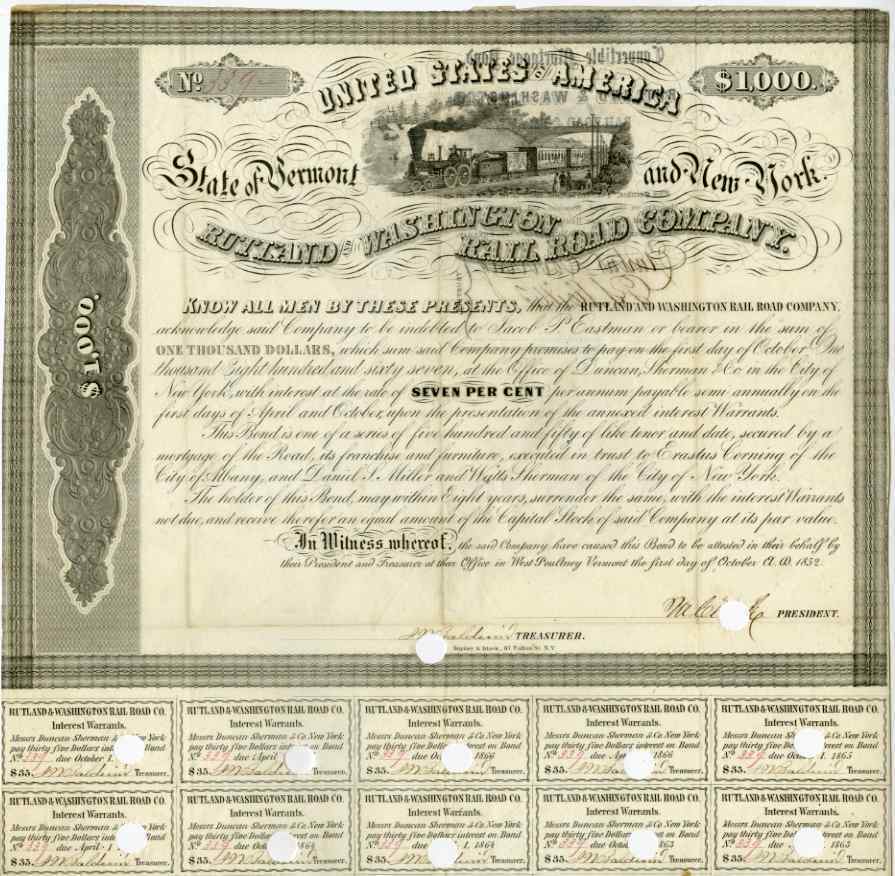 No. 339
UNITED STATES OF AMERICA
$1,000.
State of Vermont and New York.
RUTLAND AND WASHINGTON RAIL ROAD COMPANY.
$1,000.
KNOW ALL MEN BY THESE PRESENTS, that the RUTLAND AND WASHINGTON RAIL ROAD COMPANY.
acknowledge said Company to be indebted to Jacob P Eastman or bearer in the sum of
ONE THOUSAND DOLLARS, which sum said Company promises to pay on the first day of October One
thousand Eight hundred and sixty seven, at the Office of Duncan, Sherman & Co in the City of
New York, with interest at the rate of SEVEN PER CENT per annum payable semi annually on the
first days of April and October, upon the presentation of the annexed interest Warrants.
This Bond is one of a series of five hundred and fifty of like tenor and date, secured by a
mortgage of the Road, its franchise and furniture, executed in trust to Erastus Corning of the
City of Albany, and Daniel S. Miller and Watts Sherman of the City of New York.
The holder of this Bond, may within Eight years, surrender the same, with the interest Warrants
not due, and receive therefor an equal amount of the Capital Stock of said Company at its par value.
In Witness whereof, the said Company have caused this Bond to be attested in their behalf by
their President and Treasurer at their Office in West Poultney Vermont the first day of October A.D. 1852.
PRESIDENT.
J M Baldwin TREASURER.
RUTLAND & WASHINGTON RAIL ROAD CO. RUTLAND & WASHINGTON RAIL ROAD CO. RUTLAND & WASHINGTON RAIL ROAD CO. RUTLAND & WASHINGTON RAIL ROAD CO. RUTLAND & WASHINGTON RAIL ROAD CO.
Interest Warrants. Interest Warrants. Interest Warrants. Interest Warrants. Interest Warrants.
Messrs Duncan Sherman & New York Messrs Duncan Sherman & Co. New York Messrs Duncan Sherman & Co. New York Messrs Duncan Sherman & Co. New York Messrs Duncan Sherman & Co. New York
pay thirty five Dollars Bond pay thirty five Dollars on Bond pay thirty five Dollars interest on Bond pay thirty five Dollars interest on Bond pay thirty five Dollars interest on Bond
No. 339 due October 1. No. 339 due April No. 339 due 1866 No. 339 due 1866 No. 339 due 1. 1865
$35. J M Baldwin Treasurer. $35. J M Baldwin Treasurer. $35. J M Baldwin Treasurer. $35. J M Baldwin Treasurer. $35. J M Baldwin Treasurer.
RUTLAND & WASHINGTON RAIL ROAD CO. RUTLAND & WASHINGTON RAIL ROAD CO. RUTLAND & WASHINGTON RAIL ROAD CO. RUTLAND & WASHINGTON RAIL ROAD CO. RUTLAND & WASHINGTON RAIL ROAD CO.
Interest Warrants. Interest Warrants. Interest Warrants. Interest Warrants. Interest Warrants.
Messrs Duncan Sherman & York Messrs Duncan Sherman & Co. New York Messrs Duncan Sherman & Co. New York Messrs Duncan Sherman & Co. New York Messrs Duncan Sherman & Co. New York
pay thirty five Dollars Bond pay thirty five Dollars on Bond pay thirty five Dollars on Bond pay thirty five Dollars on Bond pay thirty five Dollars on Bond
No. 339 due April 1 No. 339 due 1864 No. 339 due 1, 1864 No. 339 due 1863 No. 339 due 1863
$35. J M Baldwin Treasurer. $35. J M Baldwin Treasurer. $35. J M Baldwin Treasurer. $35. J M Baldwin Treasurer. $35. J M Baldwin Treasurer.